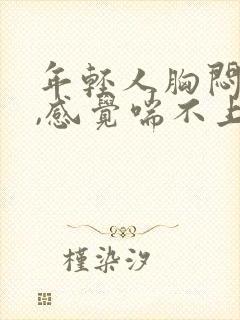 年輕人胸悶
,感覺喘不上
槿染汐